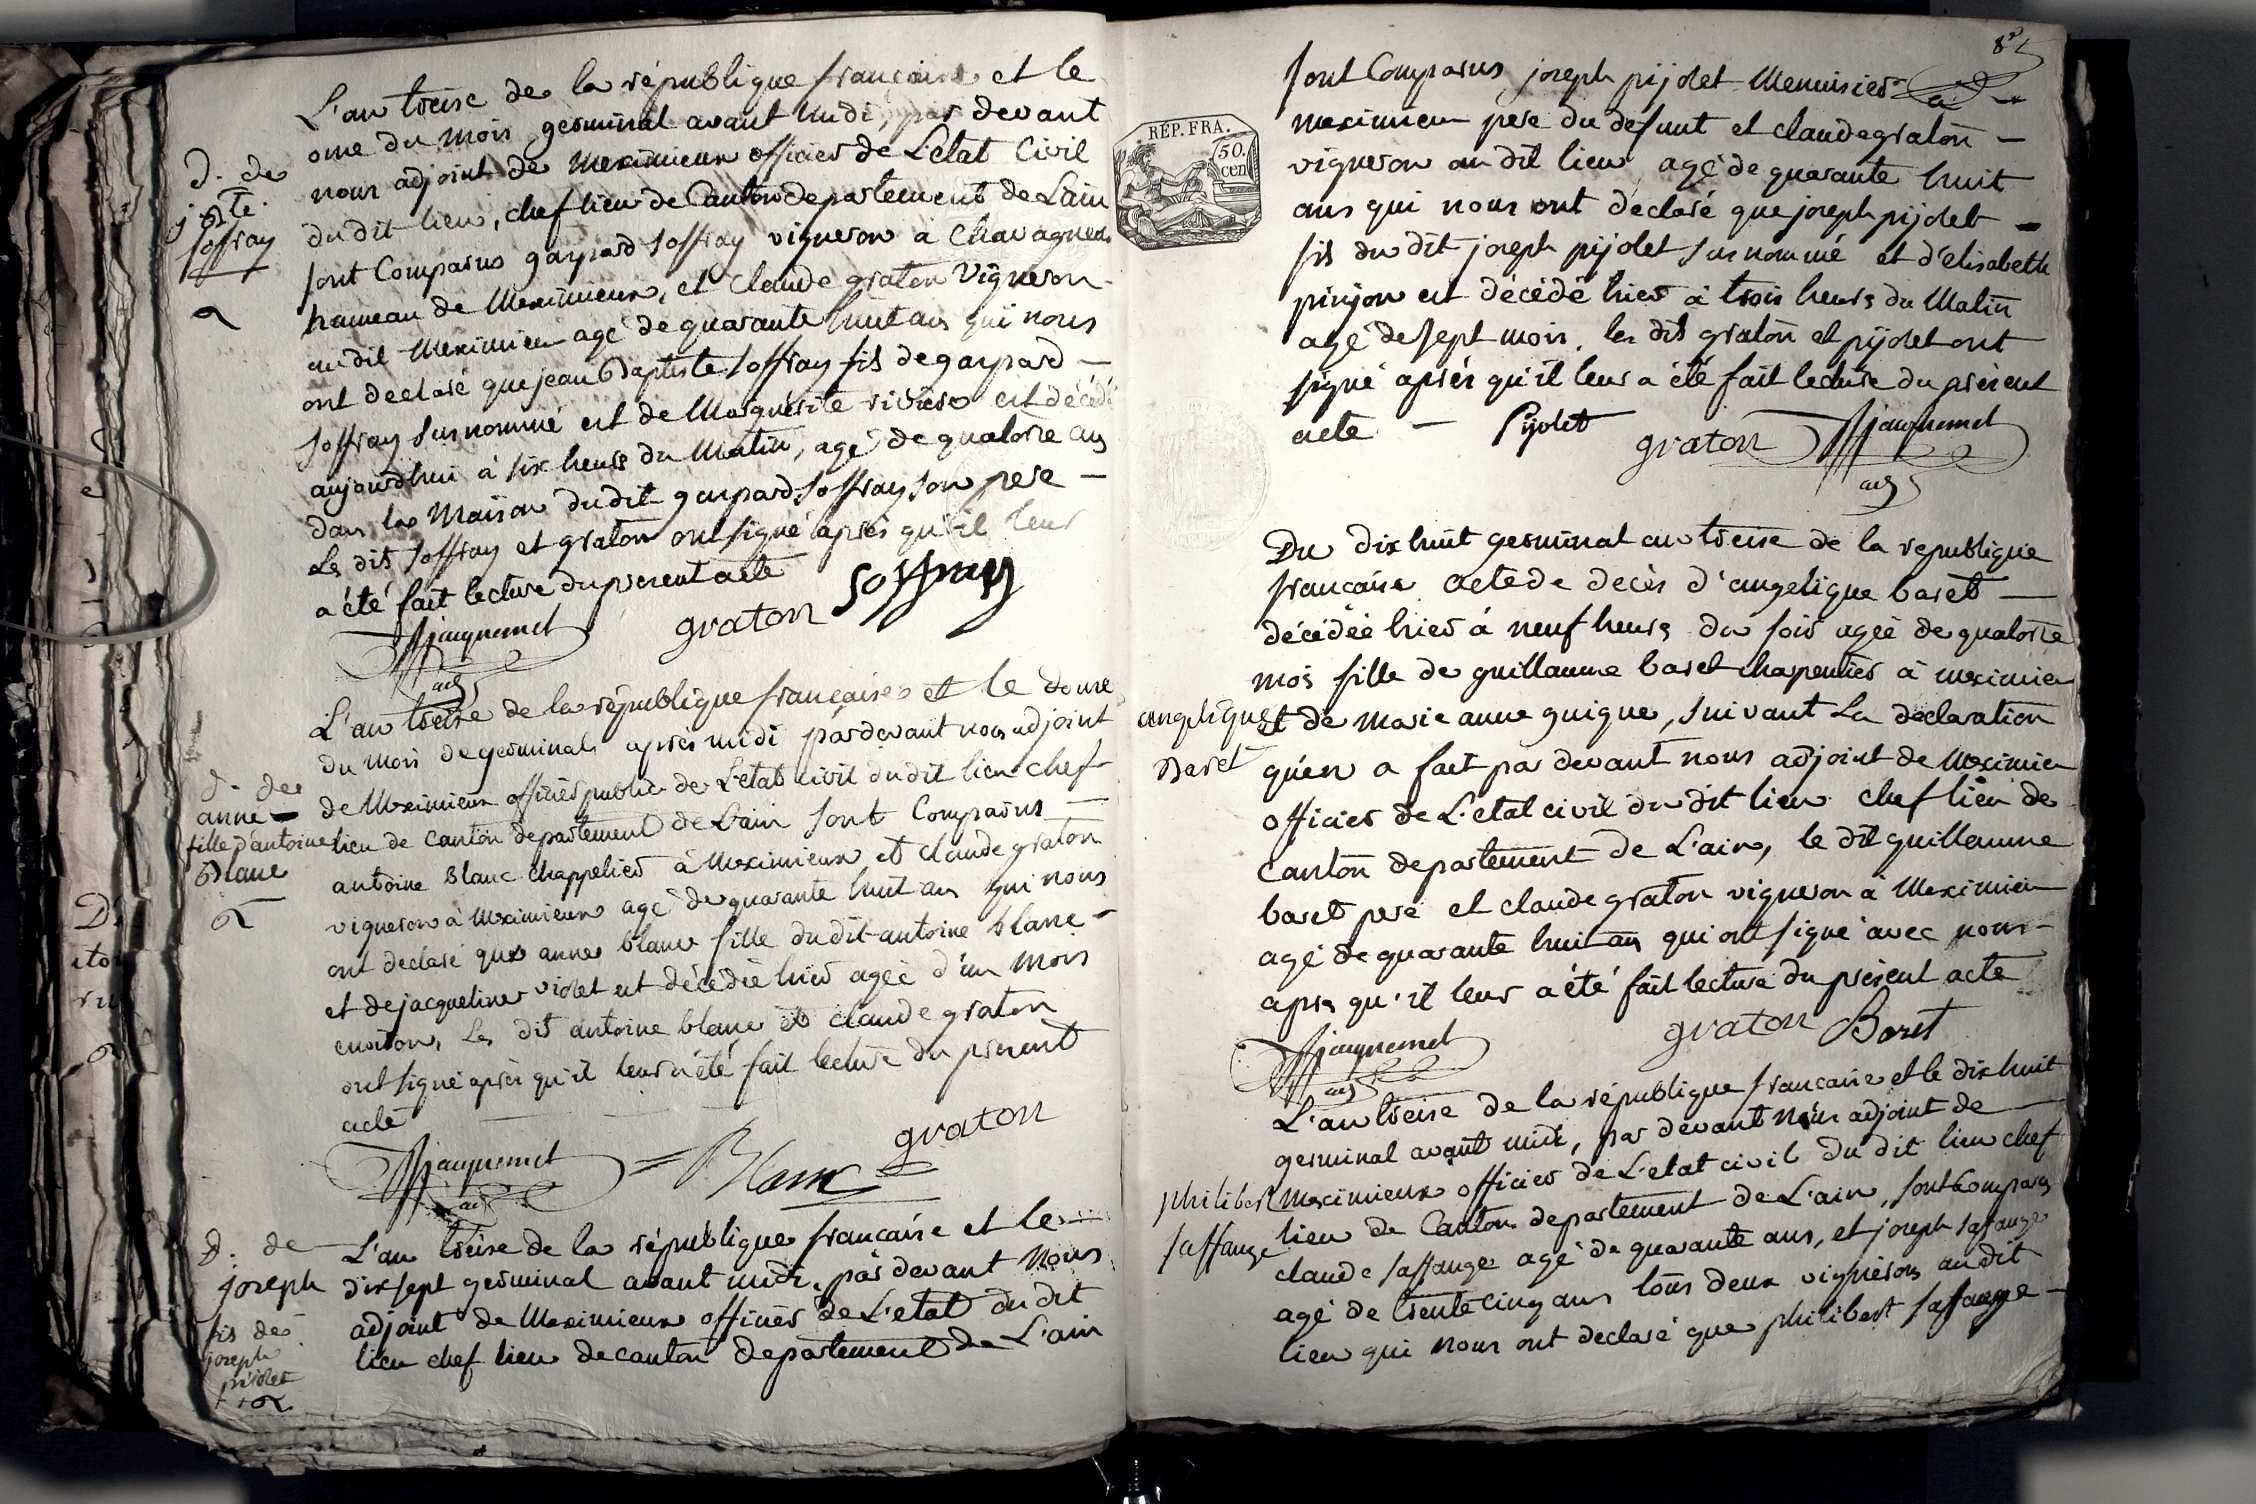 L'an treise de la république française et le
onze du mois germinal avant midi, par devant
nous adjoint de meximieux officier de L'etat Civil
du dit lieu, chef lieu de Canton departement de Lain
sont Comparus gaspard soffray vigneron a Chavagneux
hameau de Meximieux, et Claude graton Vigneron
au dit Meximieu agé de quarante huit ans qui nous
ont declaré que jean Baptiste soffray fils de gaspard —
soffray surnommé et de Marguerite rivière est décédé
aujourdhui à six heure du Matin, agé de quatorze ans
dans la Maison du dit gaspard soffray son pere —
Les dits soffray et graton ont signé après qu'il leur
a été fait lecture du present acte
jacquemet
adj
graton
soffray
d. de
j B.te
soffray
L'an treise de la république française et le douze
du mois de germinal après midi par devant nous adjoint
de Meximieux officier public de L'etat civil du dit lieu chef
lieu de canton departement de Lain sont Comparus —
antoine Blanc chappelier à Meximieux et claude graton
vigneron à Meximieux agé de quarante huit ans qui nous
ont declaré que anne blanc fille du dit antoine blanc —
et de jacqueline violet est décédée hier agée d'un mois
environ, Les dit antoine blanc et claude graton
ont signé après qu'il leur a été fait lecture du present
acte
jacquemet
adj
Blanc
graton
d. de
anne —
fille d'antoine
Blanc
L'an treise de la république française et le
dix sept germinal avant midi, par devant Nous
adjoint de Meximieux officier de L'etat du dit
lieu chef lieu de canton departement de L'ain
d. de
joseph
fis de
joseph
pijolet
sont Comparus joseph pijolet Menuisier a
meximieu pere du defunt et claude graton —
vigneron au dit lieu agé de quarante huit
ans qui nous ont déclaré que joseph pijolet —
fils du dit joseph pijolet surnommé et d'elisabeth
pinjon est décédé hier à trois heure du Matin
agé de sept mois, les dits graton et pijolet ont
signé après qu'il leur a été fait lecture du present
acte — Pijolet
graton
jacquemet
adj
Du dix huit germinal an treise de la republique
française acte de decès d'angelique baret —
décédée hier à neuf heure du soir agée de quatorze
mois fille de guillaume baret charpentier à meximieu
et de marie anne guigue, suivant La declaration
qu'en a fait par devant nous adjoint de Meximieu
officier de L'etat civil du dit lieu chef lieu de
canton departement de L'ain, le dit guillaume
baret pere et claude graton vigneron à Meximieu
agé de quarante huit ans qui ont signé avec nous —
après qu'il leur a été fait lecture du présent acte
graton Baret
jacquemet
adj
angelique
Baret
L'an treise de la république française et le dix huit
germinal avant midi, par devant nous adjoint de —
meximieux officier de L'etat civil du dit lieu chef
lieu de Canton departement de L'ain, sont Comparus
claude saffange agé de quarante ans, et joseph saffange
agé de trente cinq ans tous deux vignerons au dit
lieu qui nous ont declaré que philibert saffange —
philibert
saffange
RÉP. FRA.
50.
cen